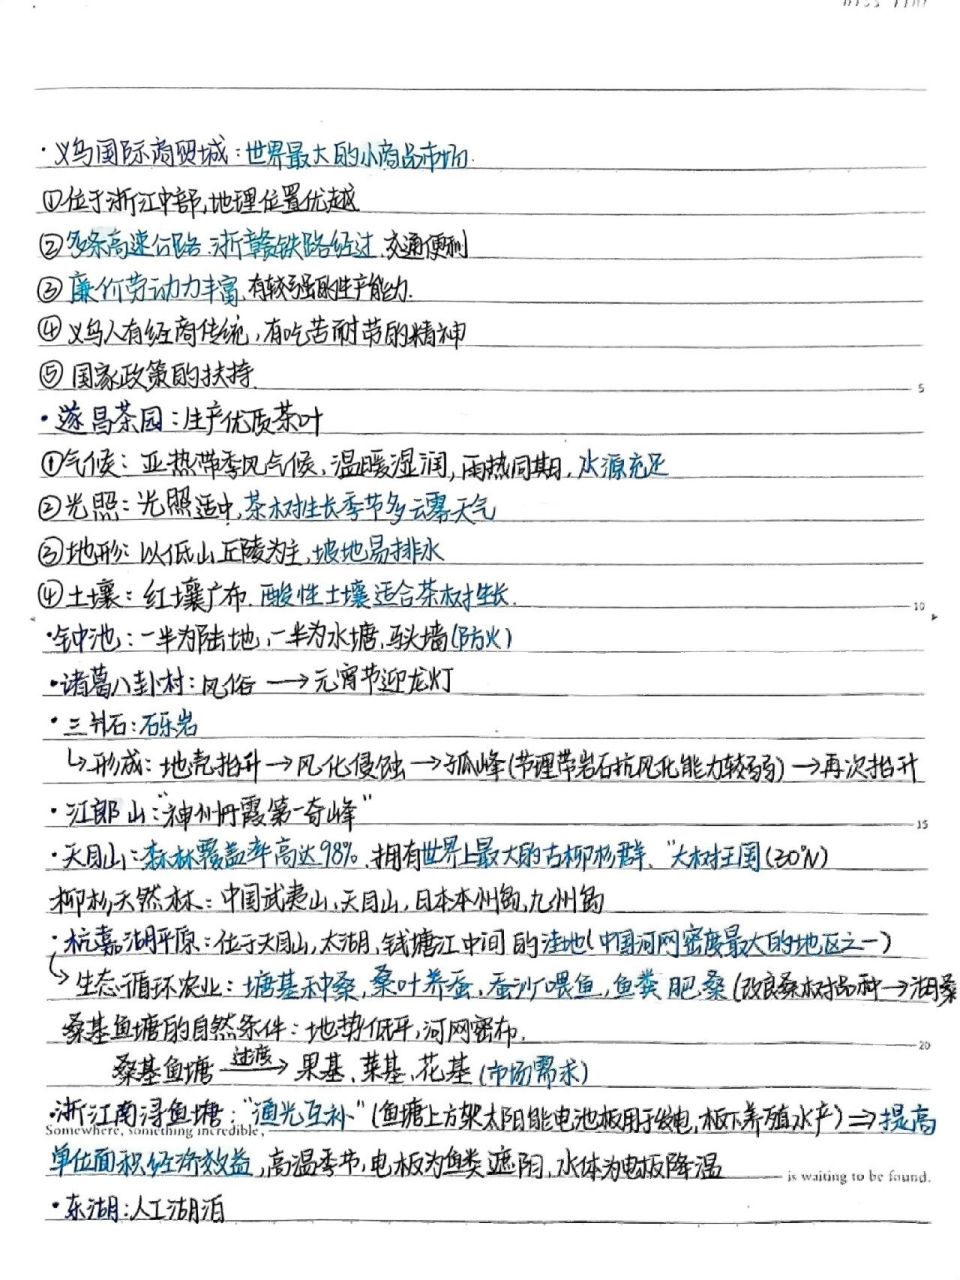 ·义乌国际商贸城：世界最大的小商品市场.
①位于浙江中部,地理位置优越
②多条高速公路.浙赣铁路经过,交通便利
③廉价劳动力丰富,有较强的生产能力.
④义乌人有经商传统,有吃苦耐劳的精神
⑤国家政策的扶持.
5
·遂昌茶园：生产优质茶叶
①气候：亚热带季风气候,温暖湿润,雨热同期,水源充足
②光照：光照适中,茶树生长季节多云雾天气
③地形：以低山丘陵为主,坡地易排水
④土壤：红壤广布.酸性土壤适合茶树生长.
10
·钟池：一半为陆地,一半为水塘,马头墙(防火)
·诸葛八卦村：风俗→元宵节迎龙灯
·三爿石：砾岩
↳形成：地壳抬升→风化侵蚀→孤峰(节理带岩石抗风化能力较弱)→再次抬升
·江郎山："神州丹霞第一奇峰"
15
·天目山：森林覆盖率高达98%.拥有世界上最大的古柳杉群、"大树王国(30°N)
柳杉天然林：中国武夷山,天目山,日本本州岛,九州岛
·杭嘉湖平原：位于天目山,太湖,钱塘江中间的洼地(中国河网密度最大的地区之一)
↳生态循环农业：塘基种桑,桑叶养蚕,蚕沙喂鱼,鱼粪肥桑(改良桑树品种→湖桑
桑基鱼塘的自然条件：地势低平,河网密布.
20
桑基鱼塘 →果基、菜基、花基(市场需求)
·浙江南浔鱼塘："渔光互补"(鱼塘上方架太阳能电池板用于发电,板下养殖水产)⇒提高
Somewhere, something incredible,
单位面积经济效益,高温季节,电板为鱼类遮阳,水体为电板降温
is waiting to be found.
·东湖：人工湖泊